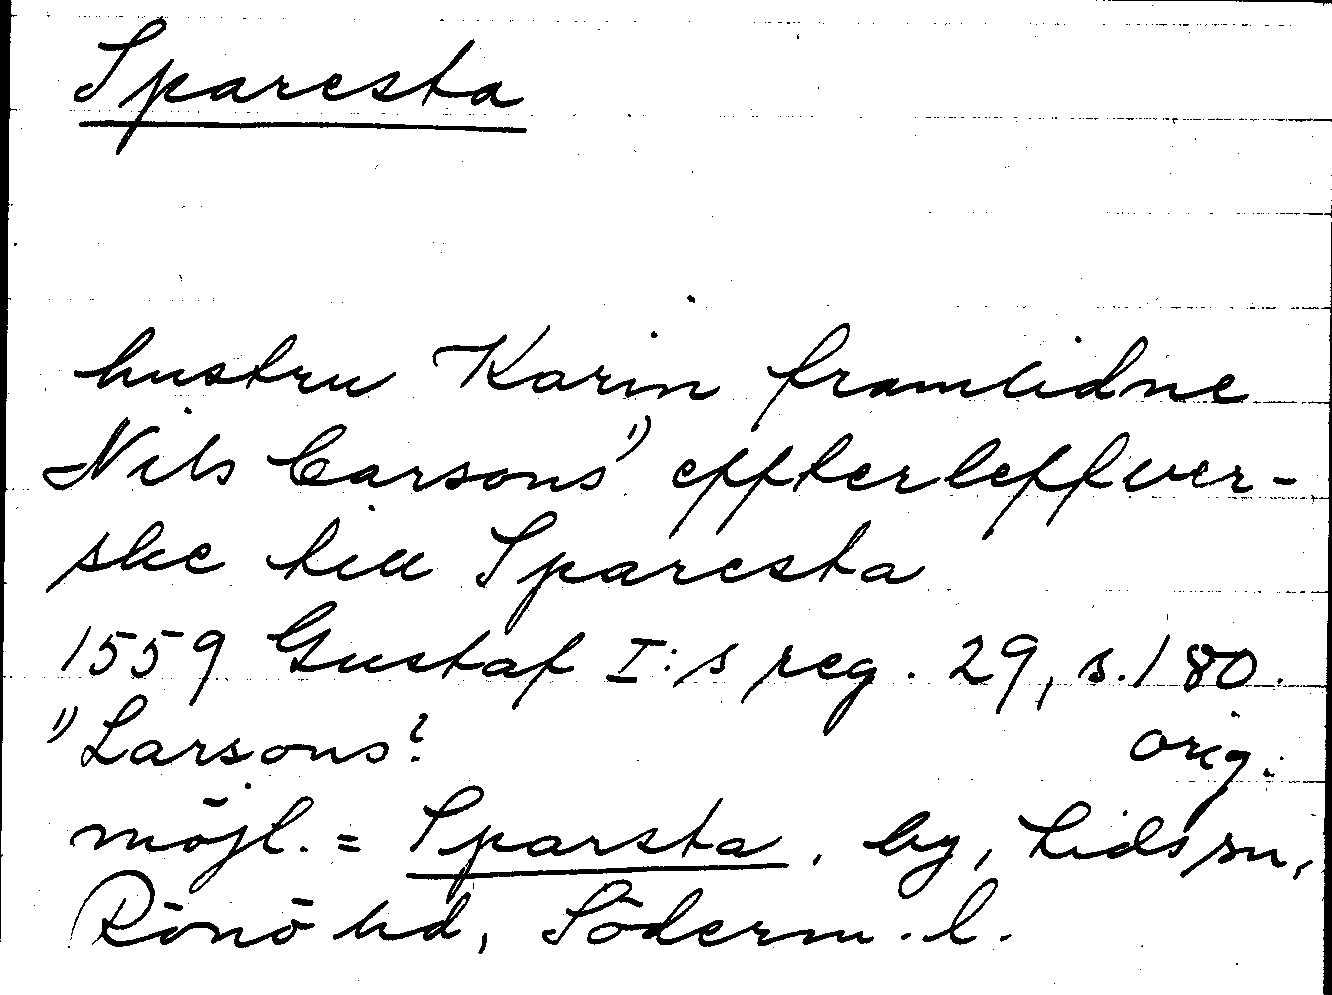 Sparesta
hustru Karin framlidne
Nils Carsons¹⁾ effterleffwer-
ske till Sparesta
1559 Gustaf I:s reg. 29, s. 180.
¹⁾ Larsons? orig.
möjl. = Sparsta, by, Lids sn,
Rönö hd, Söderm. l.